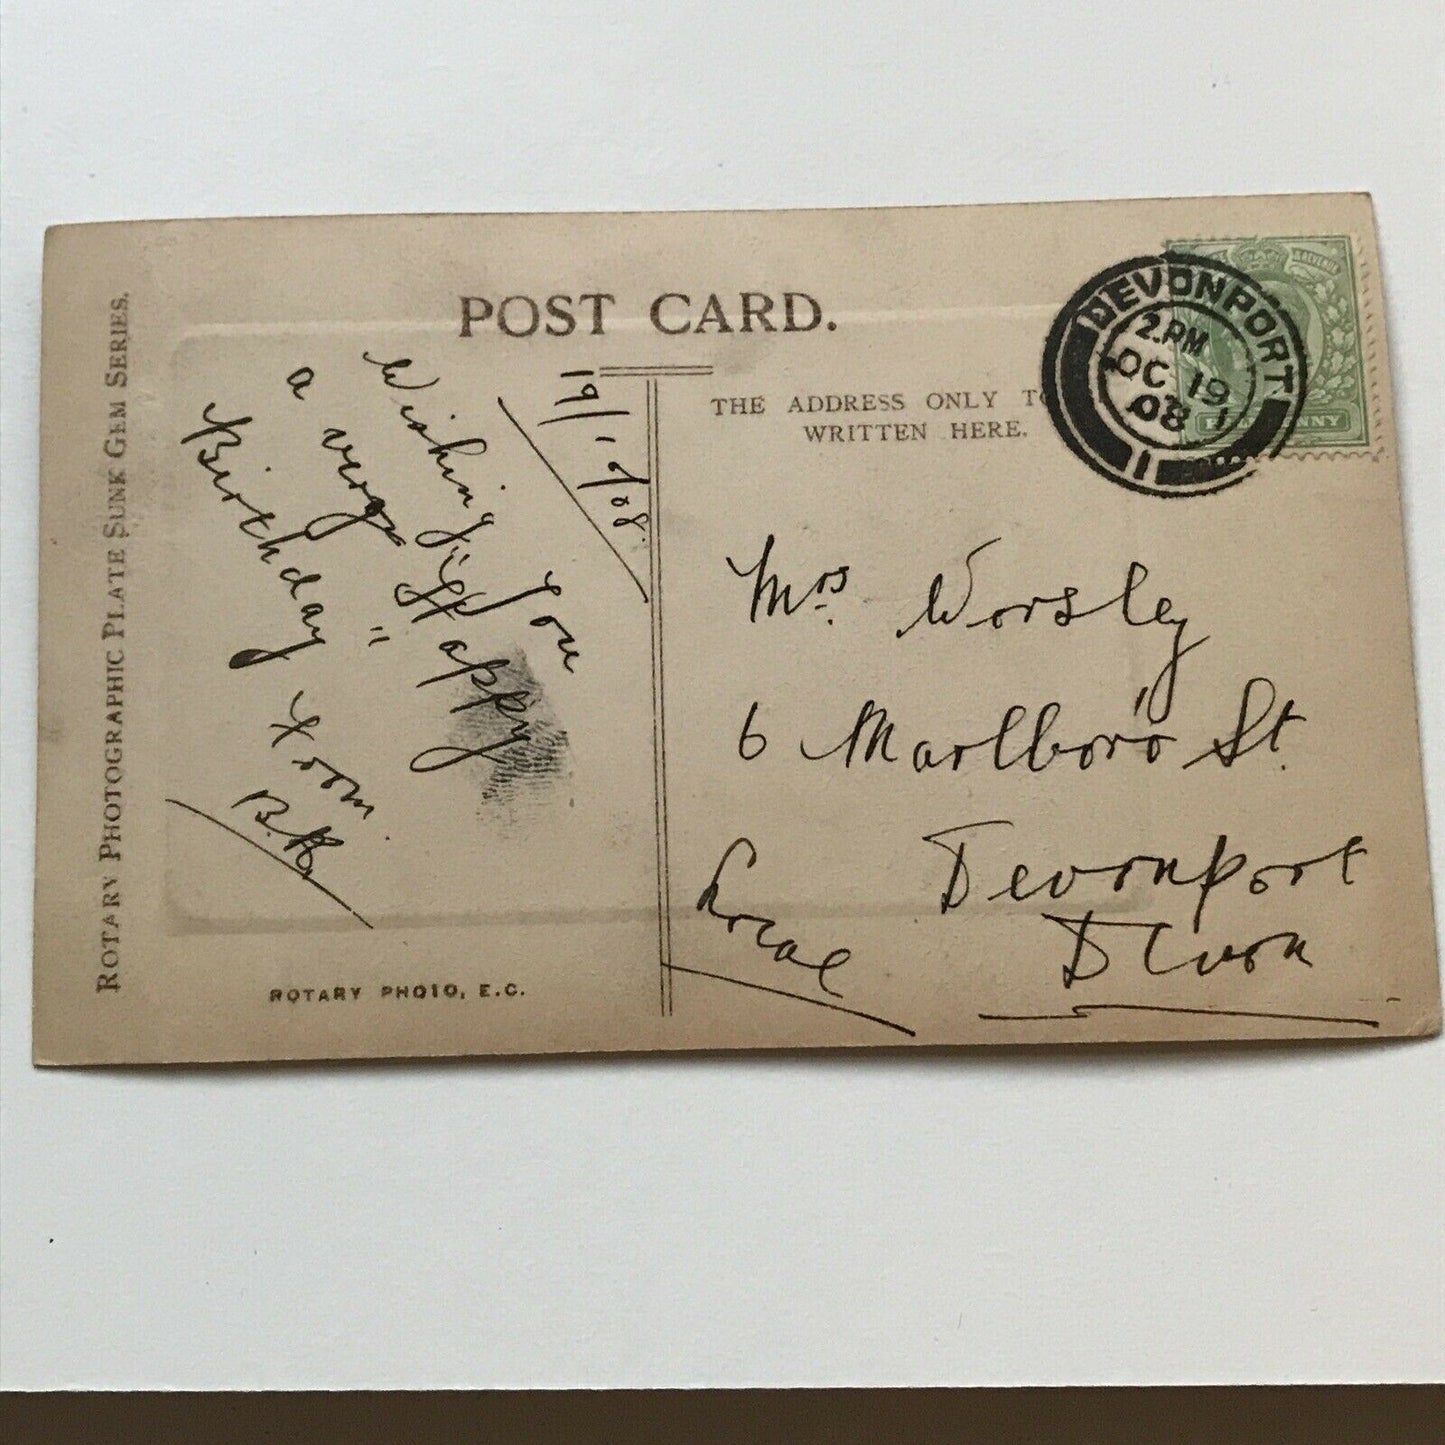 ROTARY PHOTOGRAPHIC PLATE SUNK GEM SERIES.
POST CARD.
19/10/08.
Wishing You
a very "Happy"
Birthday from
B.H.
ROTARY PHOTO, E.C.
THE ADDRESS ONLY TO
WRITTEN HERE.
DEVONPORT
2.PM
OC 19
08
1
Mrs. Worsley
6 Marlboro' St.
Devonport
Devon
Local